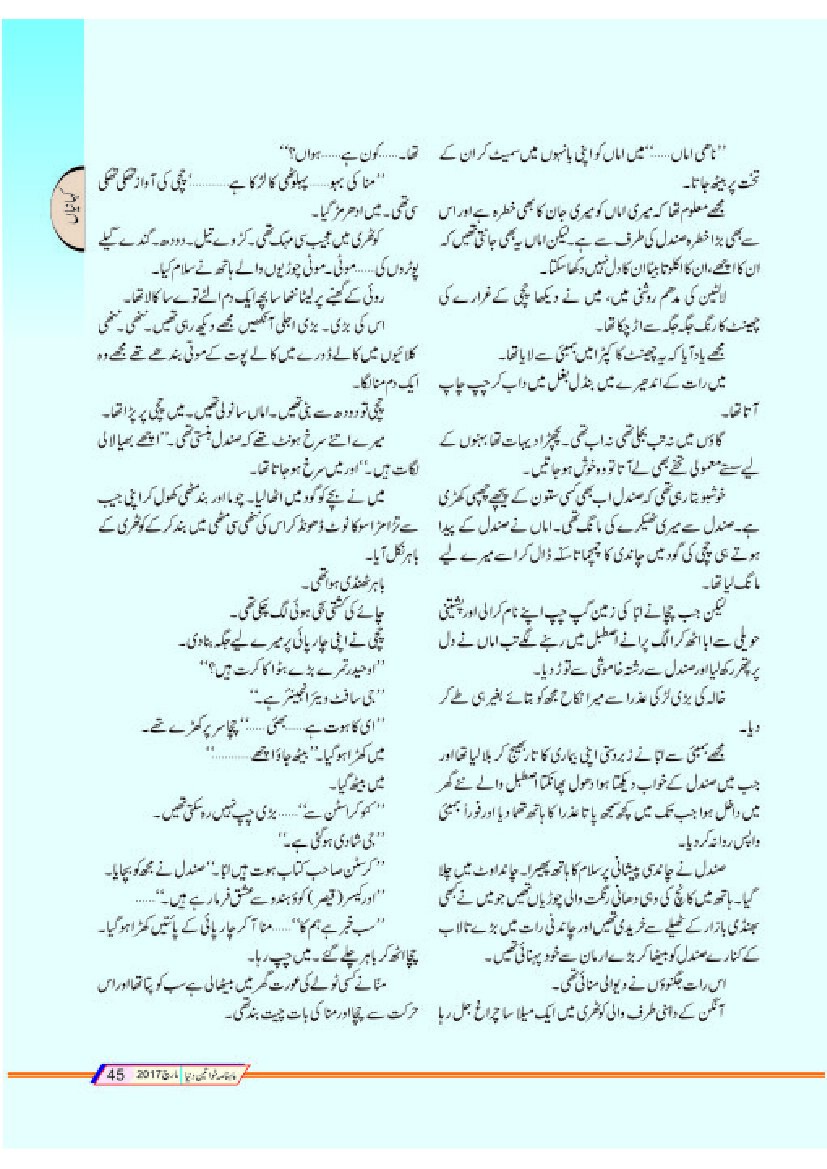 ’’ناھی اماں.....‘‘میں اماں کو اپنی بانہوں میں سمیٹ کر ان کے
تخت پر بیٹھ جاتا۔
مجھے معلوم تھا کہ میری اماں کو میری جان کا بھی خطرہ ہے اور اس
سے بھی بڑا خطرہ صندل کی طرف سے ہے۔ لیکن اماں یہ بھی جانتی تھیں کہ
ان کا اچھے، ان کا اکلوتا بیٹا ان کا دل نہیں دکھا سکتا۔
لالٹین کی مدھم روشنی میں، میں نے دیکھا چچی کے غرارے کی
چھینٹ کا رنگ جگہ جگہ سے اڑ چکا تھا۔
مجھے یاد آیا کہ یہ چھینٹ کا کپڑا میں بمبئی سے لایا تھا۔
میں رات کے اندھیرے میں بنڈل بغل میں داب کر چپ چاپ
آتا تھا۔
گاؤں میں نہ تب بجلی تھی نہ اب تھی۔ پچھڑا دیہات تھا بہنوں کے
لیے سستے معمولی تحفے بھی لے آتا تو وہ خوش ہو جاتیں۔
خوشبو بتا رہی تھی کہ صندل اب بھی کسی ستون کے پیچھے چھپی کھڑی
ہے۔ صندل سے میری ٹھیکرے کی مانگ تھی۔ اماں نے صندل کے پیدا
ہوتے ہی چچی کی گود میں چاندی کا چمچماتا سکّہ ڈال کر اسے میرے لیے
مانگ لیا تھا۔
لیکن جب چچا نے ابّا کی زمین گپ چپ اپنے نام کرا لی اور پشتینی
حویلی سے ابا اٹھ کر الگ پرانے اصطبل میں رہنے لگے تب اماں نے دل
پر پتھر رکھ لیا اور صندل سے رشتہ خاموشی سے توڑ دیا۔
خالہ کی بڑی لڑکی عذرا سے میرا نکاح مجھ کو بتائے بغیر ہی طے کر
دیا۔
مجھے بمبئی سے ابّا نے زبردستی اپنی بیماری کا تار بھیج کر بلا لیا تھا اور
جب میں صندل کے خواب دیکھتا ہوا دھول پھانکتا اصطبل والے نئے گھر
میں داخل ہوا جب تک میں کچھ سمجھ پاتا عذرا کا ہاتھ تھما دیا اور فوراً بمبئی
واپس روانہ کر دیا۔
صندل نے چاندسی پیشانی پر سلام کا ہاتھ پھیرا۔ چاند اوٹ میں چلا
گیا۔ ہاتھ میں کانچ کی وہی دھانی رنگت والی چوڑیاں تھیں جو میں نے کبھی
بھنڈی بازار کے ٹھیلے سے خریدی تھیں اور چاندنی رات میں بڑے تالاب
کے کنارے صندل کو بیٹھا کر بڑے ارمان سے خود پہنائی تھیں۔
اس رات جگنوؤں نے دیوالی منائی تھی۔
آنگن کے داہنی طرف والی کوٹھری میں ایک میلا سا چراغ جل رہا
تھا۔.....کون ہے.....ہواں؟‘‘
’’منا کی بہو.....پہلوٹھی کا لڑکا ہے...........‘چچی کی آواز تھکی تھکی
سی تھی۔ میں ادھر مڑ گیا۔
کوٹھری میں عجیب سی مہک تھی۔ کڑوے تیل۔ دودھ۔ گندے گیلے
پوتڑوں کی.....موٹی۔ موٹی چوڑیوں والے ہاتھ نے سلام کیا۔
روئی کے گھنے پر لیٹا ننھا سا بچہ ایک دم الٹے توے سا کالا تھا۔
اس کی بڑی۔ بڑی اجلی آنکھیں مجھے دیکھ رہی تھیں۔ ننھی۔ ننھی
کلائیوں میں کالے ڈورے میں کالے پوت کے موتی بندھے تھے مجھے وہ
ایک دم منا لگا۔
چچی تو دودھ سے بنی تھیں۔ اماں سانولی تھیں۔ میں چچی پر پڑا تھا۔
میرے اتنے سرخ ہونٹ تھے کہ صندل ہنستی تھی۔’’اچھے بھیا لالی
لگات ہیں۔‘‘اور میں سرخ ہو جاتا تھا۔
میں نے بچے کو گود میں اٹھا لیا۔ چوما اور بند مٹھی کھول کر اپنی جیب
سے تڑا مڑا سو کا نوٹ ڈھونڈ کر اس کی ننھی سی مٹھی میں بند کر کے کوٹھری کے
باہر نکل آیا۔
باہر ٹھنڈی ہوا تھی۔
چائے کی کشتی سجی ہوئی لگ چکی تھی۔
چچی نے اپنی چارپائی پر میرے لیے جگہ بنا دی۔
’’او حیدر تمرے بڑے بنوا کا کرت ہیں؟‘‘
’’جی سافٹ ویئر انجینئر ہے۔‘‘
’’ای کا ہوت ہے.....بھئی.....‘‘چچا سر پر کھڑے تھے۔
میں کھڑا ہو گیا۔’’بیٹھ جاؤ اچھے...........‘‘
میں بیٹھ گیا۔
’’کہو کراسٹن سے‘‘.....بڑی چپ نہیں رہ سکتی تھیں۔
’’جی شادی ہو گئی ہے۔‘‘
’’کرسٹن صاحب کتاب ہوت ہیں ابّا۔‘‘صندل نے مجھ کو بچایا۔
’’اور کیسر (قیصر) کوؤ ہندو سے عشق فرما رہے ہیں۔‘‘.....
’’سب خبر ہے ہم کا‘‘.....منا آ کر چارپائی کے پائتیں کھڑا ہو گیا۔
چچا اٹھ کر باہر چلے گئے۔ میں چپ رہا۔
منّا نے کسی ٹولے کی عورت گھر میں بیٹھا لی ہے سب کو پتا تھا اور اس
حرکت سے چچا اور منا کی بات چیت بند تھی۔
ماہنامہ خواتین دنیا مارچ 2017 45